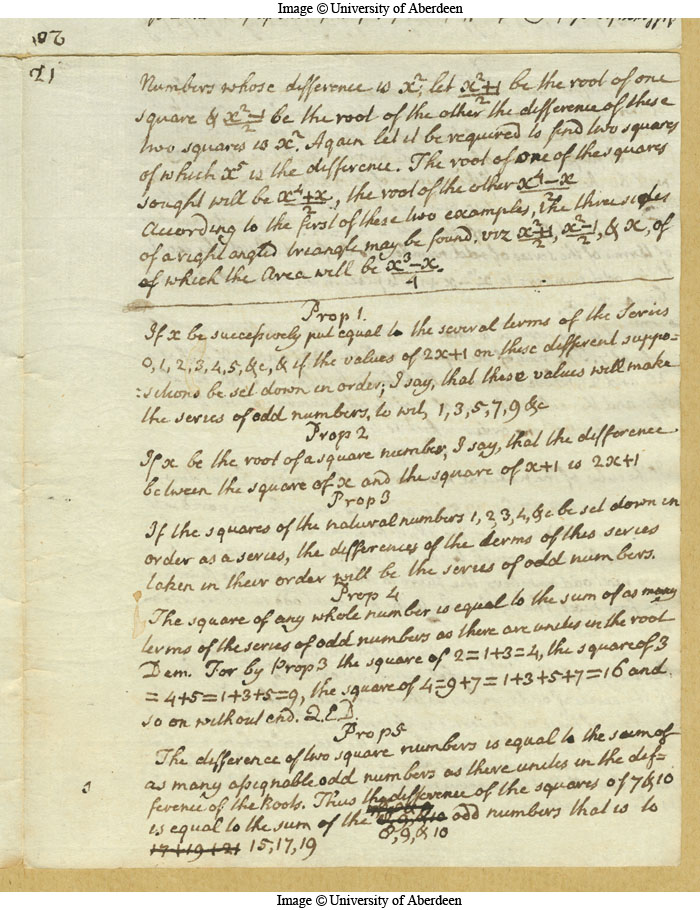 Image © University of Aberdeen
20
21
Numbers whose difference is x²; let x²+1/2 be the root of one
square & x²-1/2 be the root of the other the difference of these
two squares is x². Again let it be required to find two squares
of which x⁵ is the difference. The root of one of the squares
sought will be x⁴+x/2, the root of the other x⁴-x/2
According to the first of these two examples, the three sides
of a right angled triangle may be found, viz x²+1/2, x²-1/2, & x, of
of which the Area will be x³-x/4.
Prop 1.
If x be successively put equal to the several terms of the Series
0, 1, 2, 3, 4, 5, &c, & if the values of 2x+1 on these different suppo-
:sitions be set down in order; I say, that these values will make
the series of odd numbers, to wit, 1, 3, 5, 7, 9 &c
Prop 2
If x be the root of a square number, I say, that the difference
between the square of x and the square of x+1 is 2x+1
Prop 3
If the squares of the natural numbers 1, 2, 3, 4, &c be set down in
order as a series, the differences of the terms of this series
taken in their order will be the series of odd numbers.
Prop 4
The square of any whole number is equal to the sum of as many
terms of the series of odd numbers as there are unites in the root
Dem. For by Prop 3 the square of 2=1+3=4, the square of 3
=4+5=1+3+5=9, the square of 4=9+7=1+3+5+7=16 and
so on without end. Q.E.D.
Prop 5
The difference of two square numbers is equal to the sum of
as many assignable odd numbers as there unites in the dif=
ference of the Roots. Thus the difference of the squares of 7 & 10
is equal to the sum of the 8, 9, & 10 odd numbers that is to
8, 9, & 10
17+19+21 15, 17, 19
Image © University of Aberdeen